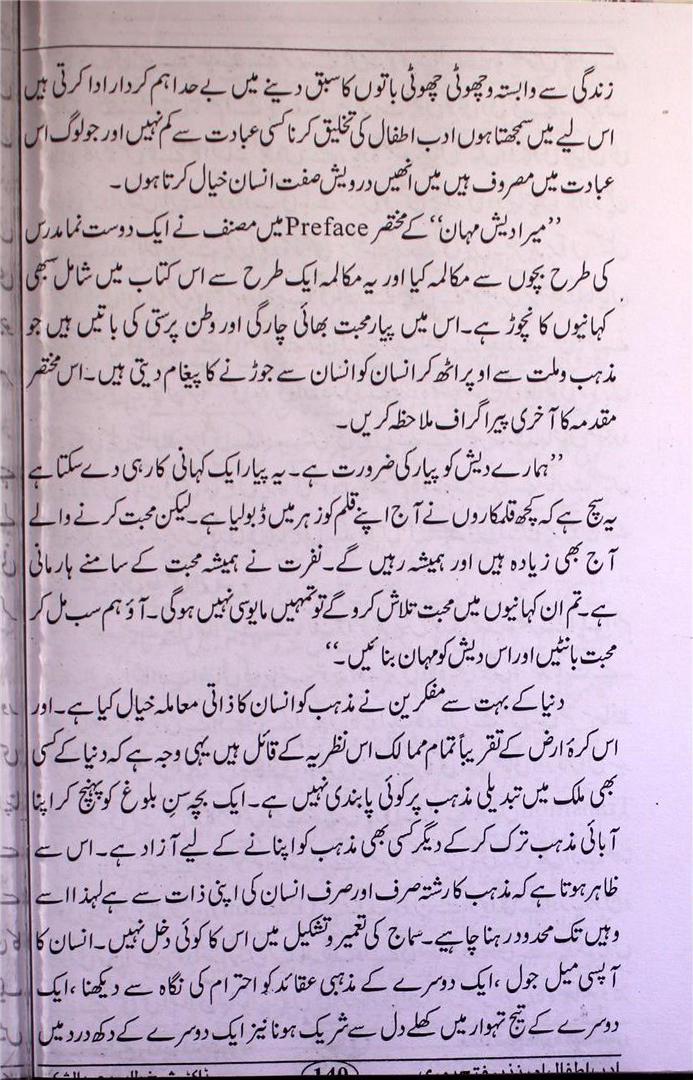 زندگی سے وابستہ و چھوٹی چھوٹی باتوں کا سبق دینے میں بے حد اہم کردار ادا کرتی ہیں
اس لیے میں سمجھتا ہوں ادب اطفال کی تخلیق کرنا کسی عبادت سے کم نہیں اور جو لوگ اس
عبادت میں مصروف ہیں میں انھیں درویش صفت انسان خیال کرتا ہوں۔
”میرا دیش مہان“ کے مختصر Preface میں مصنف نے ایک دوست نما مدرس
کی طرح بچوں سے مکالمہ کیا اور یہ مکالمہ ایک طرح سے اس کتاب میں شامل سبھی
کہانیوں کا نچوڑ ہے۔ اس میں پیار محبت بھائی چارگی اور وطن پرستی کی باتیں ہیں جو
مذہب و ملت سے اوپر اٹھ کر انسان کو انسان سے جوڑنے کا پیغام دیتی ہیں۔ اس مختصر
مقدمہ کا آخری پیراگراف ملاحظہ کریں۔
”ہمارے دیش کو پیار کی ضرورت ہے۔ یہ پیار ایک کہانی کار ہی دے سکتا ہے
یہ سچ ہے کہ کچھ قلمکاروں نے آج اپنے قلم کو زہر میں ڈبو لیا ہے۔ لیکن محبت کرنے والے
آج بھی زیادہ ہیں اور ہمیشہ رہیں گے۔ نفرت نے ہمیشہ محبت کے سامنے ہار مانی
ہے۔ تم ان کہانیوں میں محبت تلاش کرو گے تو تمہیں مایوسی نہیں ہوگی۔ آؤ ہم سب مل کر
محبت بانٹیں اور اس دیش کو مہان بنائیں۔“
دنیا کے بہت سے مفکرین نے مذہب کو انسان کا ذاتی معاملہ خیال کیا ہے۔ اور
اس کرۂ ارض کے تقریباً تمام ممالک اس نظریہ کے قائل ہیں یہی وجہ ہے کہ دنیا کے کسی
بھی ملک میں تبدیلی مذہب پر کوئی پابندی نہیں ہے۔ ایک بچہ سنِ بلوغ کو پہنچ کر اپنا
آبائی مذہب ترک کر کے دیگر کسی بھی مذہب کو اپنانے کے لیے آزاد ہے۔ اس سے
ظاہر ہوتا ہے کہ مذہب کا رشتہ صرف اور صرف انسان کی اپنی ذات سے ہے لہذا اسے
وہیں تک محدود رہنا چاہیے۔ سماج کی تعمیر و تشکیل میں اس کا کوئی دخل نہیں۔ انسان کا
آپسی میل جول، ایک دوسرے کے مذہبی عقائد کو احترام کی نگاہ سے دیکھنا، ایک
دوسرے کے تیج تہوار میں کھلے دل سے شریک ہونا نیز ایک دوسرے کے دکھ درد میں
ادب اطفال اور نذیر فتح پوری 140